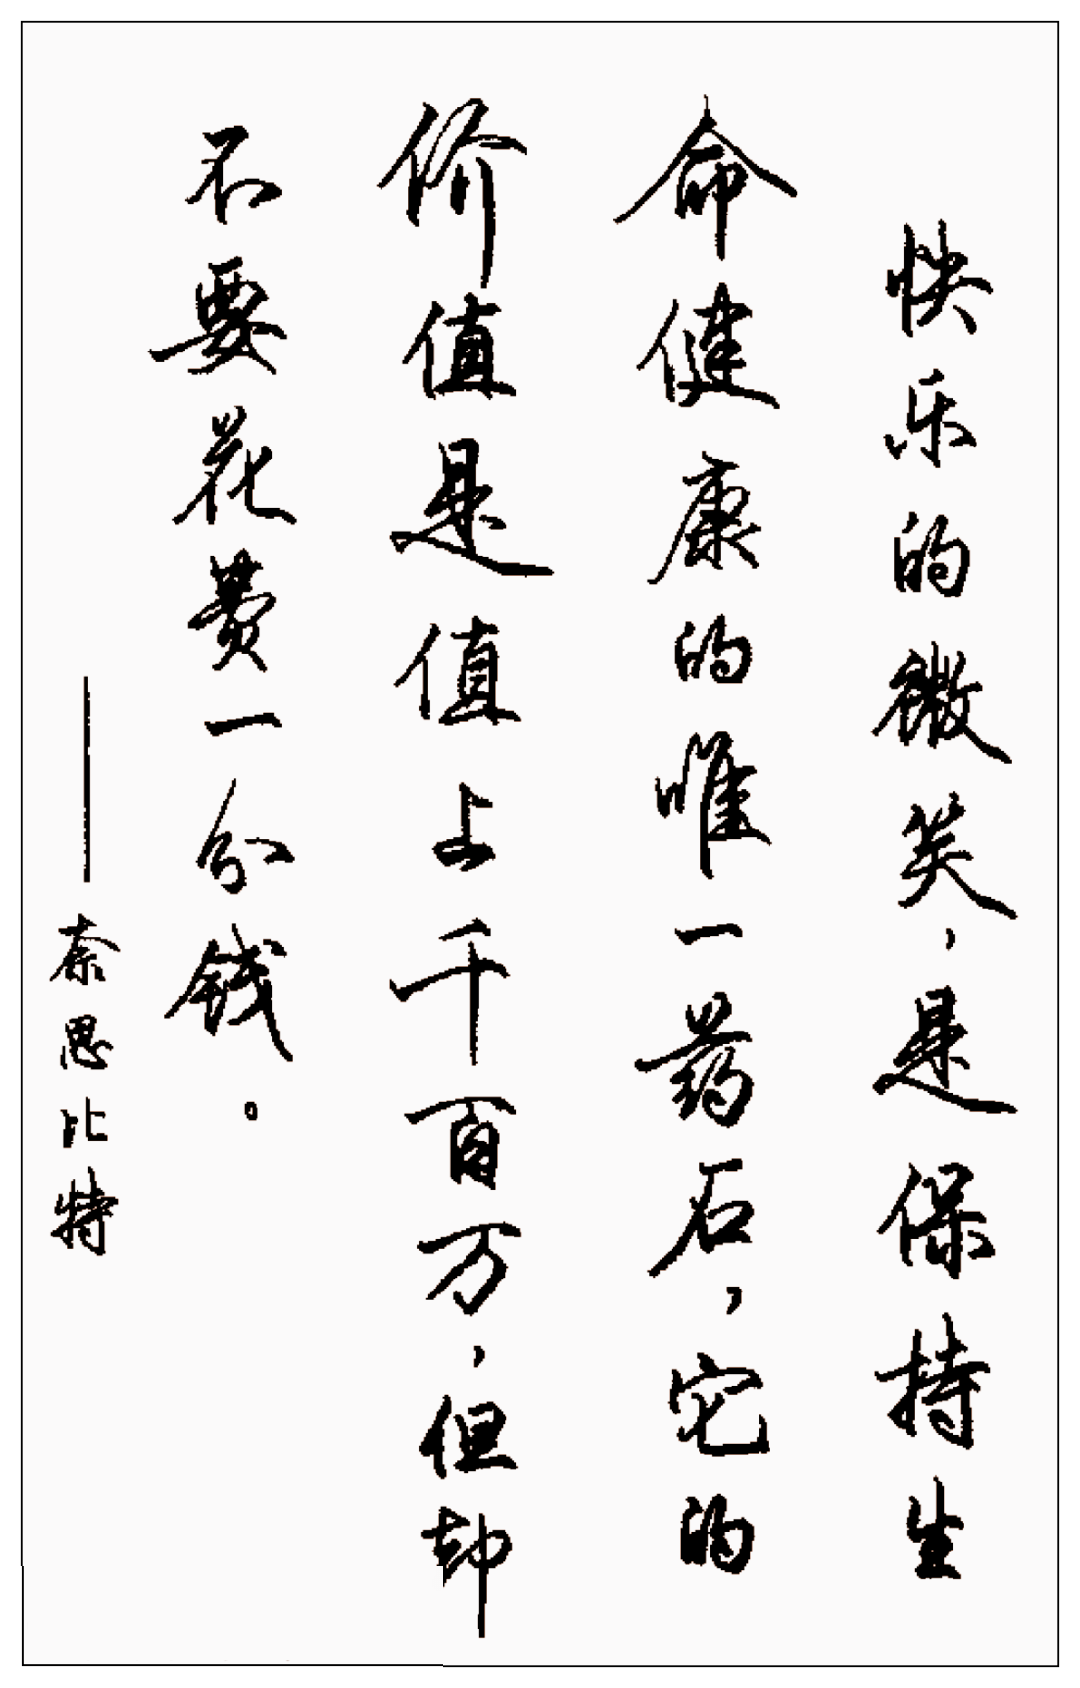 快乐的微笑，是保持生
命健康的唯一药石，它的
价值是值上千百万，但却
不要花费一分钱。
——奈思比特